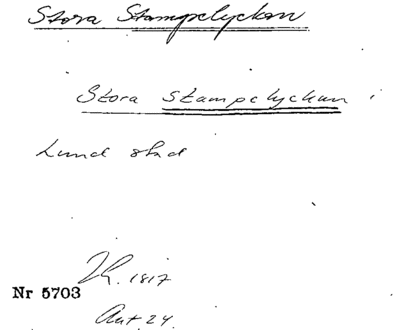 Stora Stampelyckan
Stora Stampelyckan i
Lund stad
1817
Nr 5703
Akt 24.